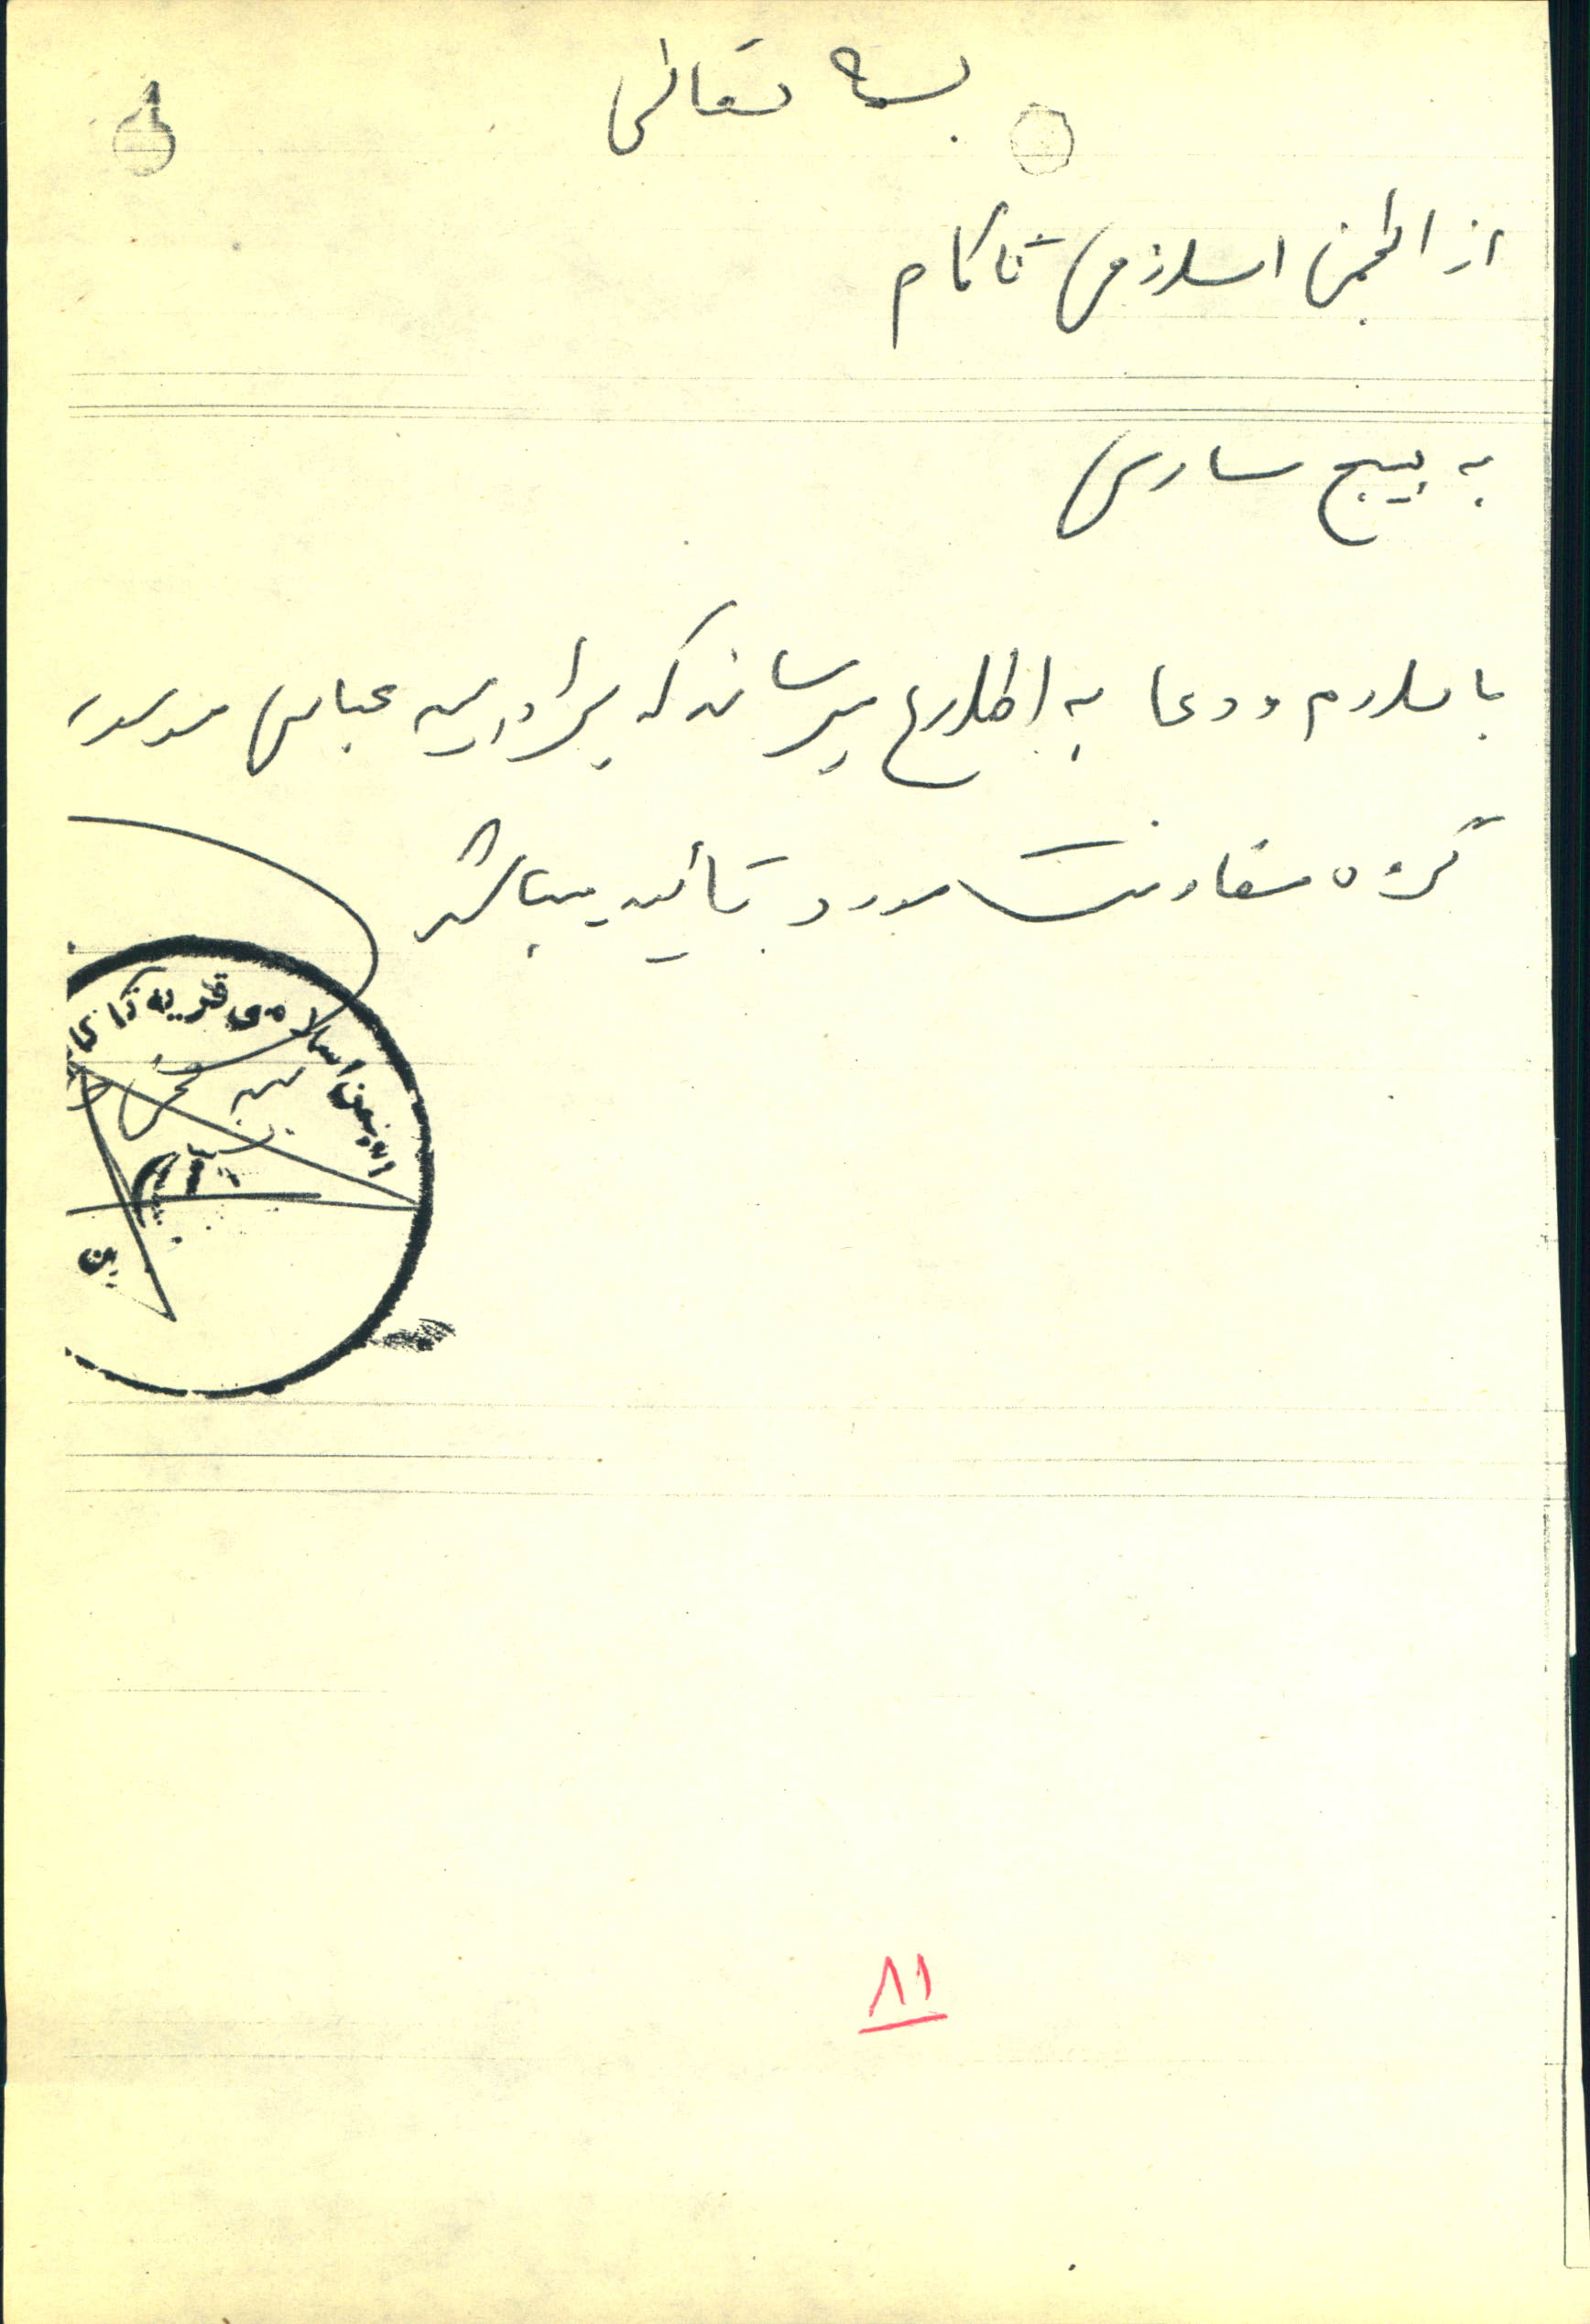 بسمه تعالی
از انجمن اسلامی تاکام
به بسیج ساری
با سلام و دعا به اطلاع میرساند که برادر سید عباس موسوی
گروه مقاومت مورد تأئید میباشد
انجمن اسلامی قریه تاکام
۸۱